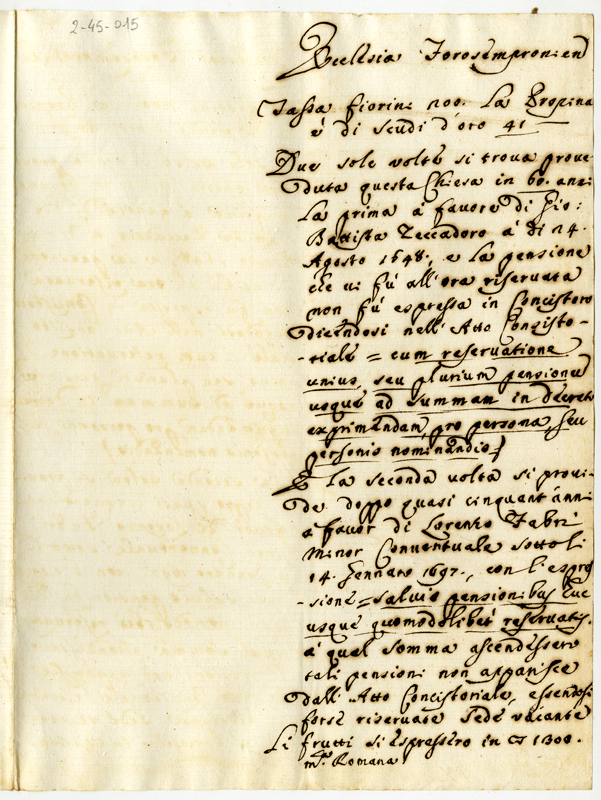 2-45-015
Ecclesia Forosempronien
Tassa fiorini 700. La Propina
è di scudi d'oro 41
Due sole volte si trova prove
duta questa Chiesa in 60. anni
La prima à favore di Gio:
Battista Zeccadoro à di 24.
Agosto 1648, e la pensione
che vi fù all'ora riservata
non fù espressa in Concistoro
dicendosi nell'Atto Concisto-
-riale = cum reservatione
unius, seu plurium pensionū
usque ad summam in decreto
exprimendam, pro persona, seu
personis nominandis
E la seconda volta si provi-
de doppo quasi cinquant'anni
à favor di Lorenzo Fabri
Minor Conventuale sotto li
14. Gennaro 1697., con l'espres
-sione = salvis pensionibus huc
usque quomodolibet reservatis.
à qual somma ascendessero
tali pensioni non apparisce
dall'Atto Concistoriale, essendosi
forse riservate Sede vacante
Li frutti si espressero in 1300.
Romana